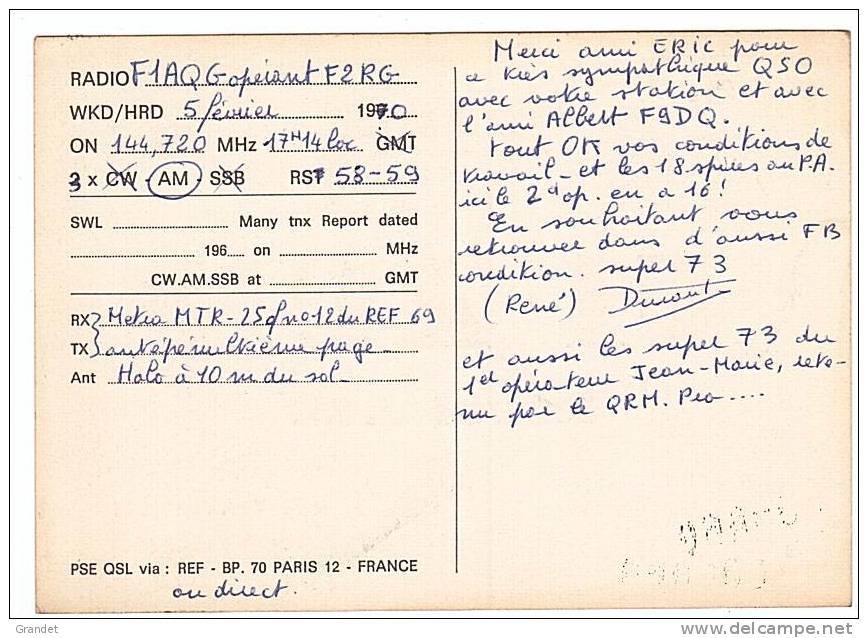 RADIO F1AQG opérant F2RG
WKD/HRD 5 février 1970
ON 144,720 MHz 17H14 loc GMT
3 x CW - AM - SSB RST 58-59
SWL Many tnx Report dated
196 on MHz
CW.AM.SSB at GMT
RX Metra MTR-25 cf no 12 du REF 69
TX antépénultième page
Ant Halo à 10 m du sol
PSE QSL via : REF - BP. 70 PARIS 12 - FRANCE
ou direct.
Merci ami ERIC pour
ce très sympathique QSO
avec votre station et avec
l'ami Albert F9DQ.
Tout OK vos conditions de
travail - et les 18 spires au P.A.
ici le 2d op. en a 16!
En souhaitant vous
retrouver dans d'aussi FB
condition. super 73
(René) Durant
et aussi les super 73 du
1er opérateur Jean-Marie, rete-
nu par le QRM. Pro....
Grandet
www.delcampe.net